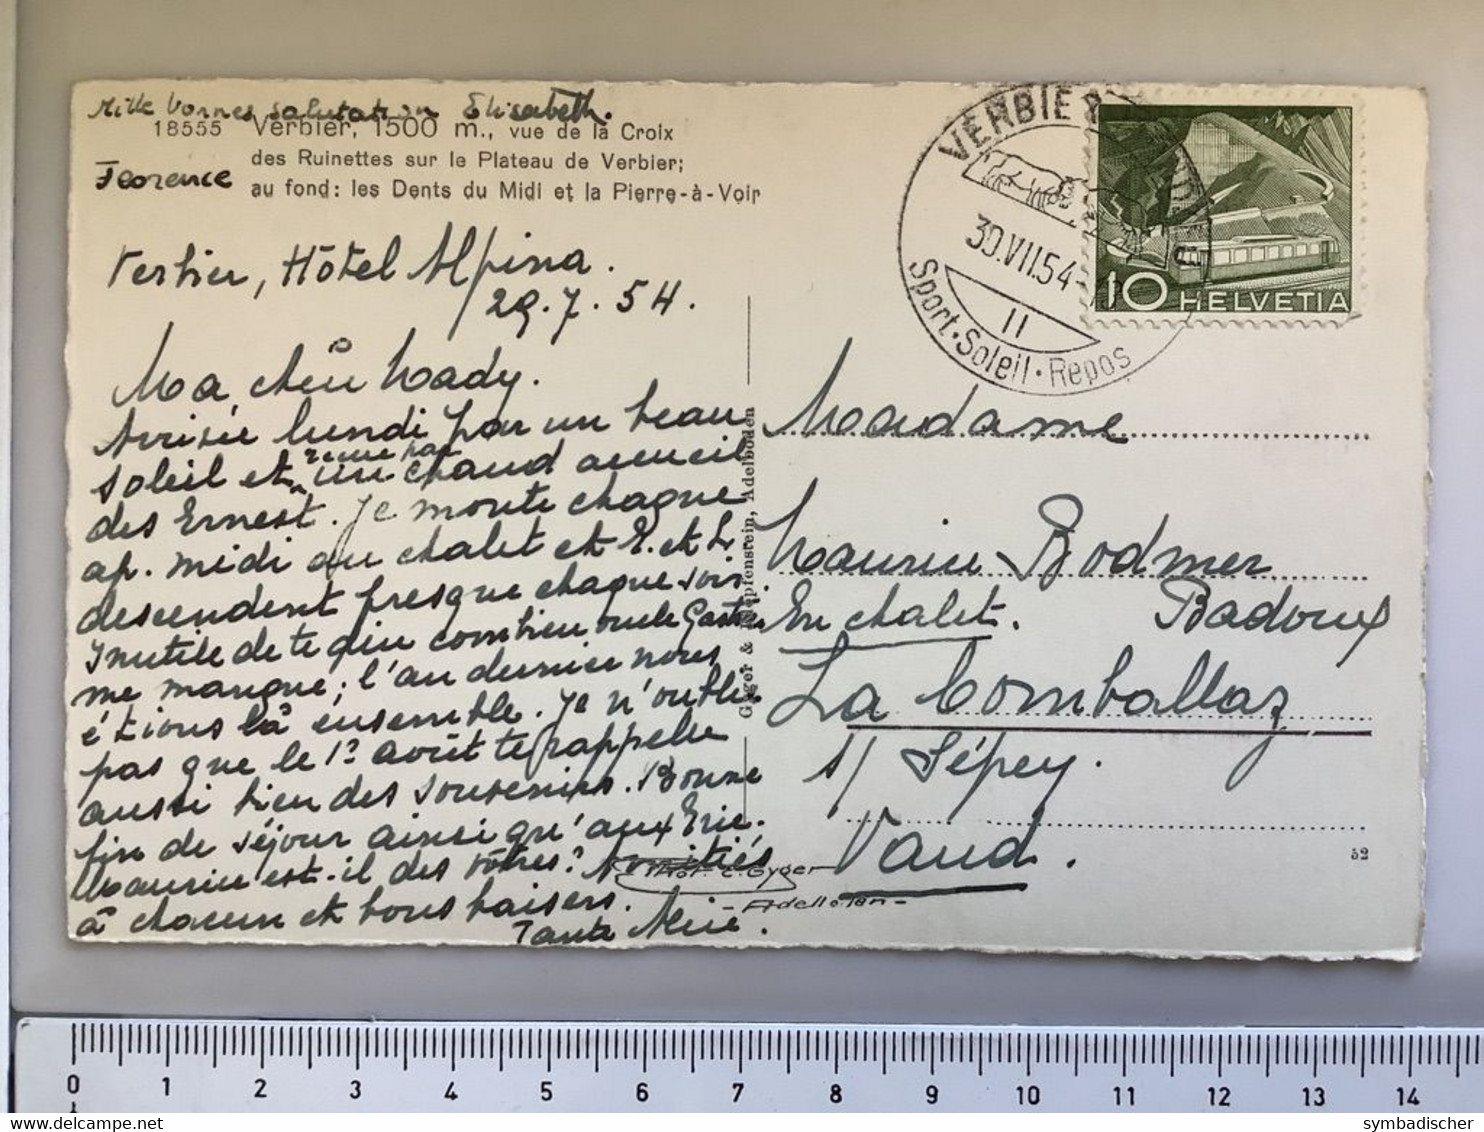 Mille bonnes salutation Elisabeth.
18555 Verbier, 1500 m., vue de la Croix
des Ruinettes sur le Plateau de Verbier;
au fond: les Dents du Midi et la Pierre-à-Voir
Florence
Verbier, Hôtel Alpina.
29.7.54.
Ma chère Mady.
Arrivée lundi par un beau
soleil et reçue par un chaud accueil
des Ernest. Je monte chaque
ap. midi au chalet et E. et L
descendent presque chaque soir
Inutile de te dire combien oncle Gaston
me manque; l'an dernier nous
étions là ensemble. Je n'oublie
pas que le 1? août te rappelle
aussi bien des souvenirs. Bonne
fin de séjour ainsi qu'aux Eric.
Maurice est-il des vôtres? Amitiés
à chacun et bons baisers.
Tante Alice.
Gyger & Klopfenstein, Adelboden
Phot. E. Gyger
- Adelboden -
VERBIER
30.VII.54
11
Sport·Soleil·Repos
10 HELVETIA
Madame
Maurice Bodmer
En chalet. Badoux
La Comballaz
s/ Sépey.
Vaud.
52
0 1 2 3 4 5 6 7 8 9 10 11 12 13 14
delcampe.net
symbadischer